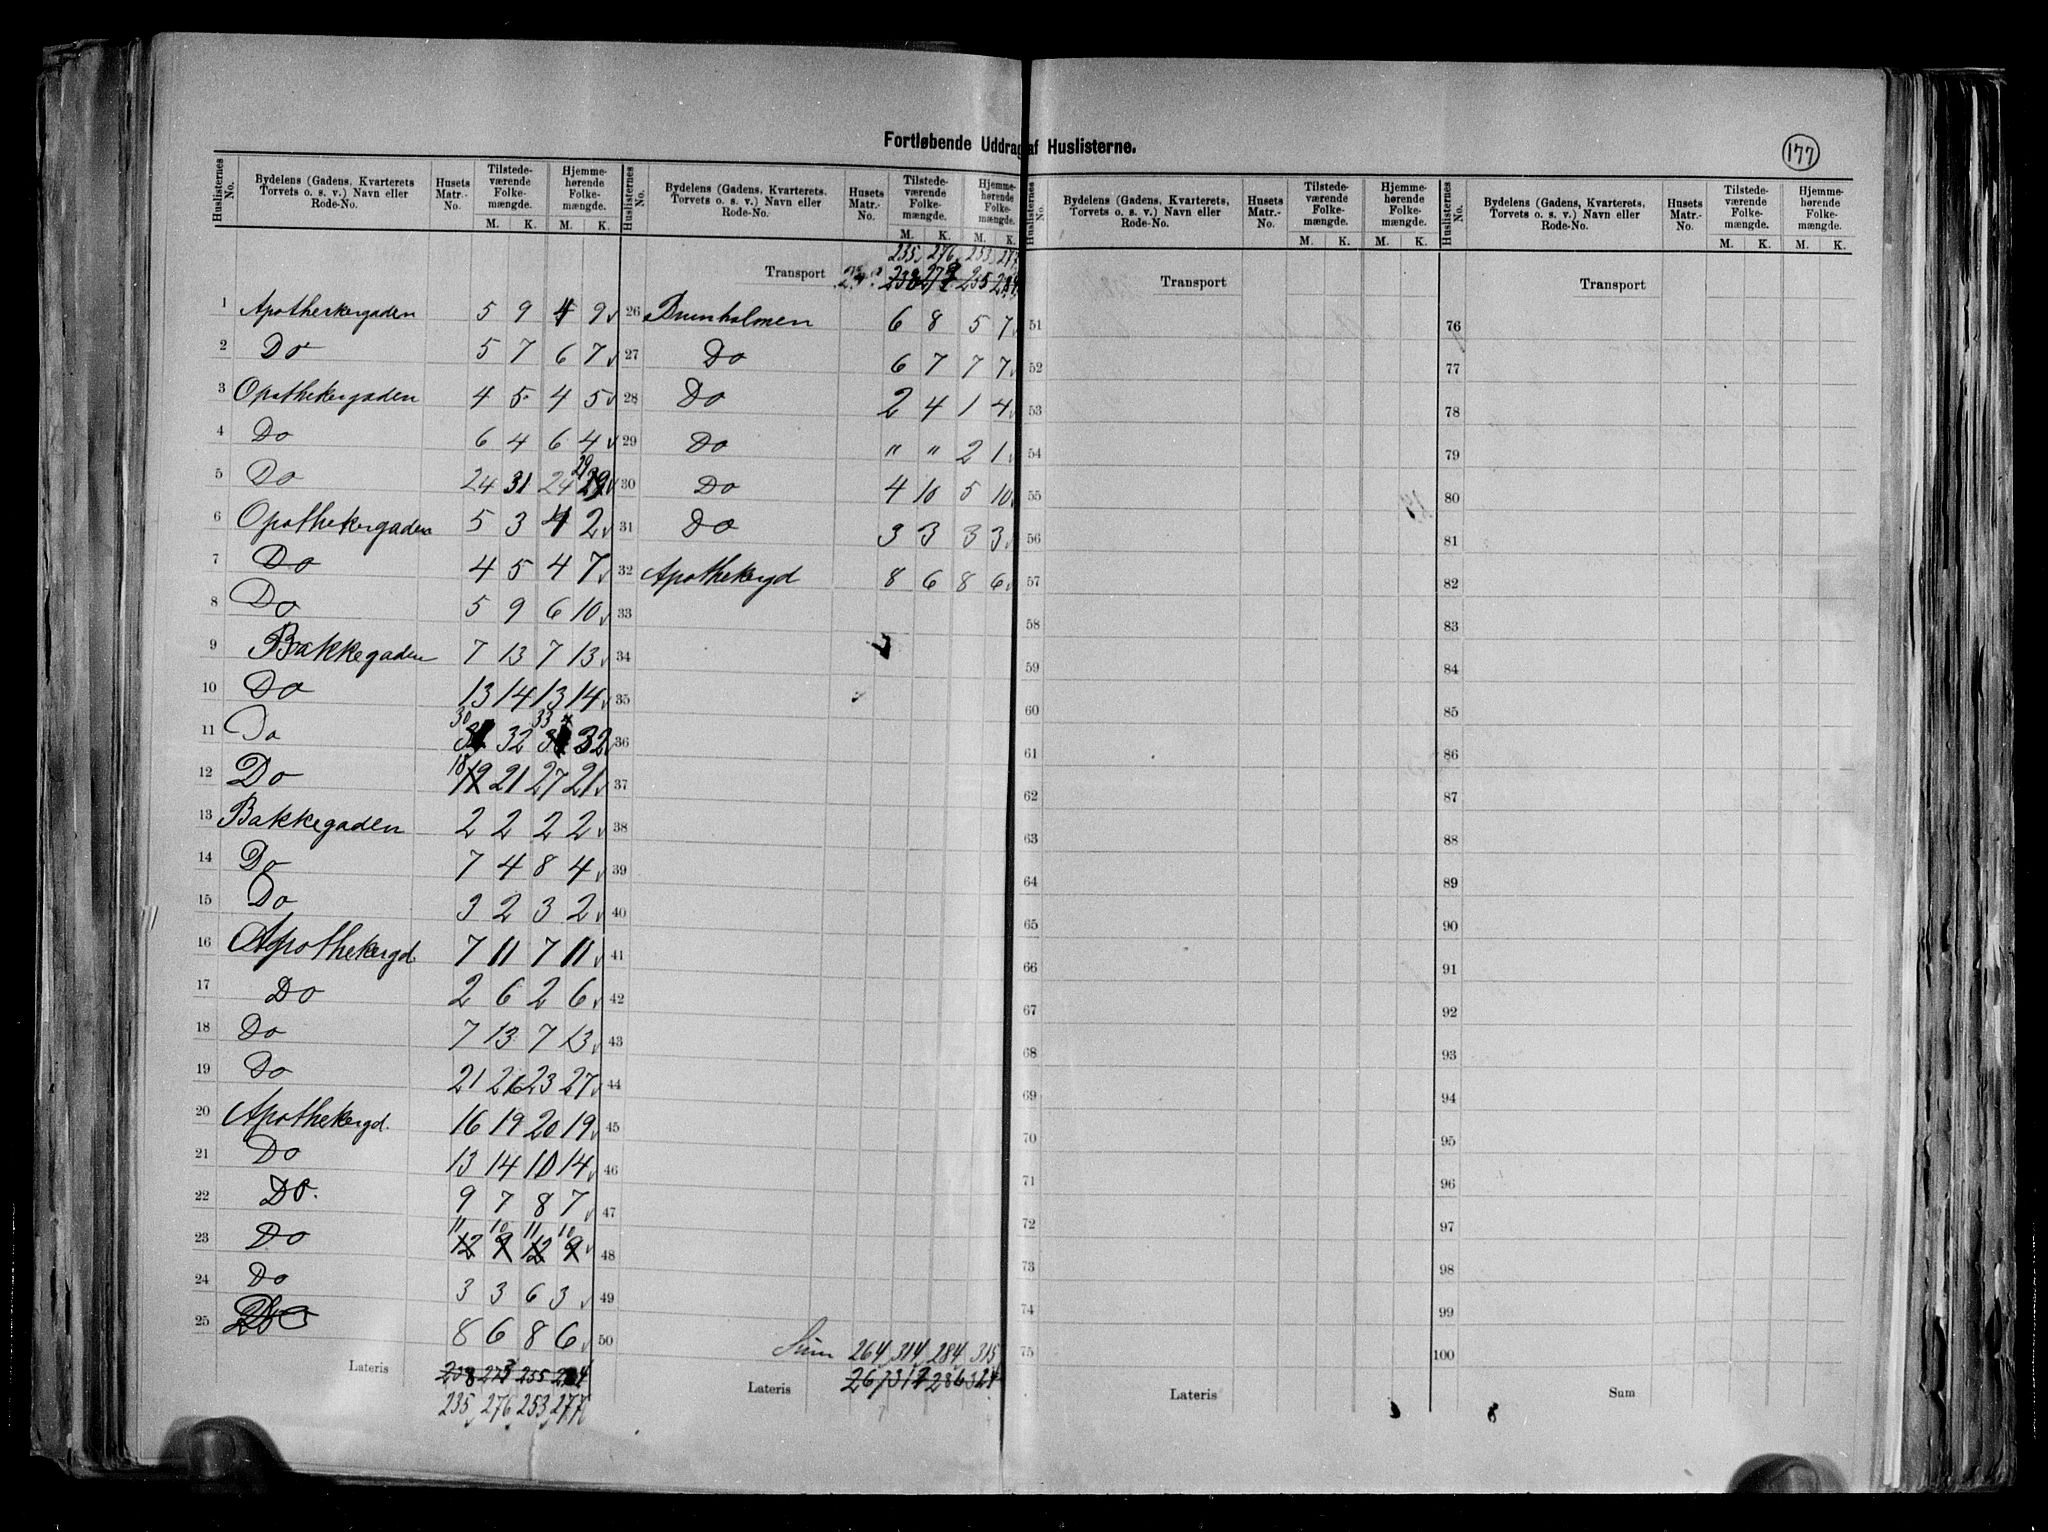 177
Fortløbende Uddrag af Huslisterne.
Huslisternes No. Bydelens (Gadens, Kvarterets Torvets o. s. v.) Navn eller Rode-No. Husets Matr.-No. Tilstedeværende Folkemængde. M. K. Hjemmehørende Folkemængde. M. K.
1 Apothekergaden 5 9 4 9
2 Do 5 7 6 7
3 Opothekergaden 4 5 4 5
4 Do 6 4 6 4
5 Do 24 31 24 29
6 Opothekergaden 5 3 4 2
7 Do 4 5 4 7
8 Do 5 9 6 10
9 Bakkegaden 7 13 7 13
10 Do 13 14 13 14
11 Do 30 32 33 32
12 Do 18 21 27 21
13 Bakkegaden 2 2 2 2
14 Do 7 4 8 4
15 Do 3 2 3 2
16 Apothekergd. 7 11 7 11
17 Do 2 6 2 6
18 Do 7 13 7 13
19 Do 21 26 23 27
20 Apothekergd. 16 19 20 19
21 Do 13 14 10 14
22 Do. 9 7 8 7
23 Do 11 10 11 10
12 9 12 9
24 Do 3 3 6 3
25 Do 8 6 8 6
Lateris 238 273 255
235 276 253 277
Huslisternes No. Bydelens (Gadens, Kvarterets, Torvets o. s. v.) Navn eller Rode-No. Husets Matr.-No. Tilstedeværende Folkemængde. M. K. Hjemmehørende Folkemængde. M. K.
235 276 253 277
Transport 238 255
26 Buenholmen 6 8 5 7
27 Do 6 7 7 7
28 Do 2 4 1 4
29 Do " " 2 1
30 Do 4 10 5 10
31 Do 3 3 3 3
32 Apothekergd 8 6 8 6
33
34
35
36
37
38
39
40
41
42
43
44
45
46
47
48
49
50
Sum 264 314 284 315
Lateris 267 286
Huslisternes No. Bydelens (Gadens, Kvarterets, Torvets o. s. v.) Navn eller Rode-No. Husets Matr.-No. Tilstedeværende Folkemængde. M. K. Hjemmehørende Folkemængde. M. K.
Transport
51
52
53
54
55
56
57
58
59
60
61
62
63
64
65
66
67
68
69
70
71
72
73
74
75
Lateris
Huslisternes No. Bydelens (Gadens, Kvarterets, Torvets o. s. v.) Navn eller Rode-No. Husets Matr.-No. Tilstedeværende Folkemængde. M. K. Hjemmehørende Folkemængde. M. K.
Transport
76
77
78
79
80
81
82
83
84
85
86
87
88
89
90
91
92
93
94
95
96
97
98
99
100
Sum